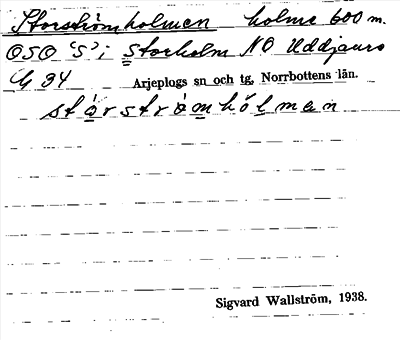 Storströmholmen holme 600 m.
OSO "S" i Storholm NO Uddjaurs
Arjeplogs sn och tg, Norrbottens län.
Sigvard Wallström, 1938.